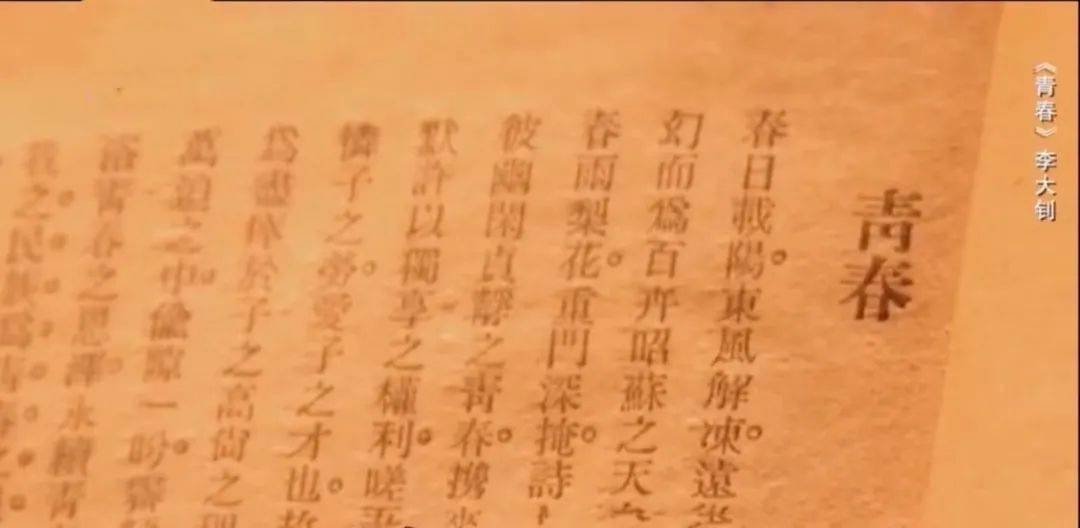 《青春》李大钊
青春
春日載陽。東風解凍。遠
幻而爲百卉昭蘇之天
春雨梨花。重門深掩。詩
彼幽閑貞靜之靑春。攙
默許以獨享之權利。嗟吾
憐子之勞。愛子之才也。
爲盡瘁於子之高尙之理
萬迫之中。偷一盼
浴靑春之恩澤。永續靑
我之民族爲靑春之